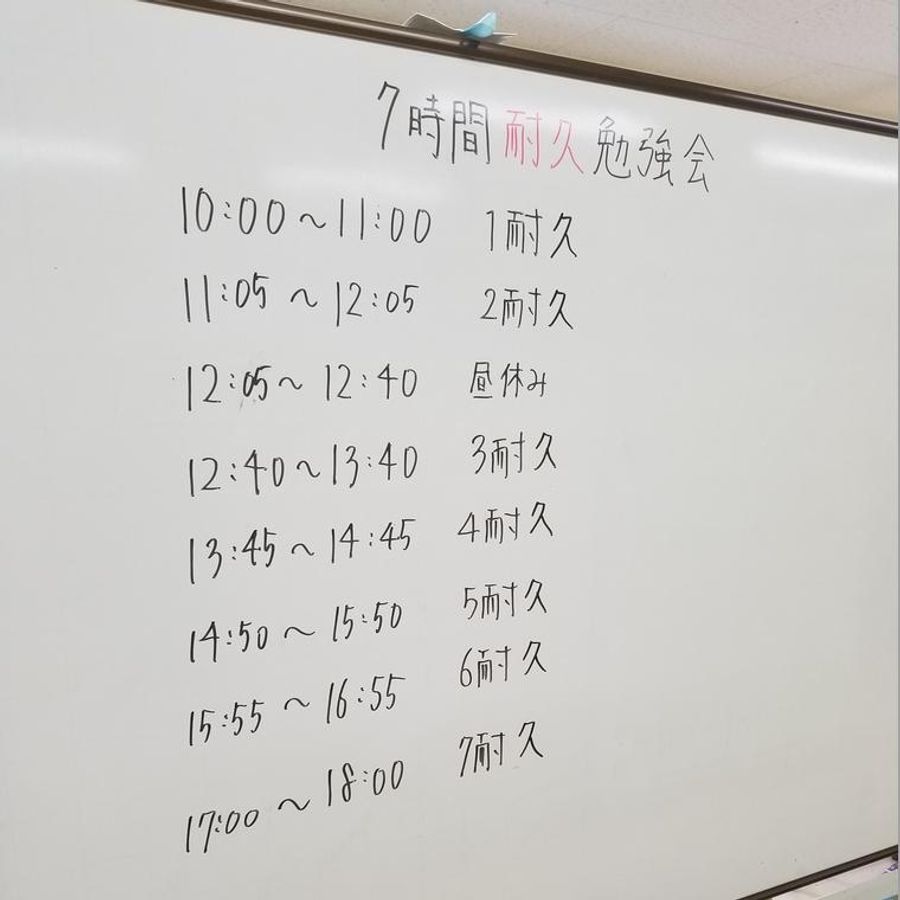 7時間耐久勉強会
10:00〜11:00 1耐久
11:05〜12:05 2耐久
12:05〜12:40 昼休み
12:40〜13:40 3耐久
13:45〜14:45 4耐久
14:50〜15:50 5耐久
15:55〜16:55 6耐久
17:00〜18:00 7耐久